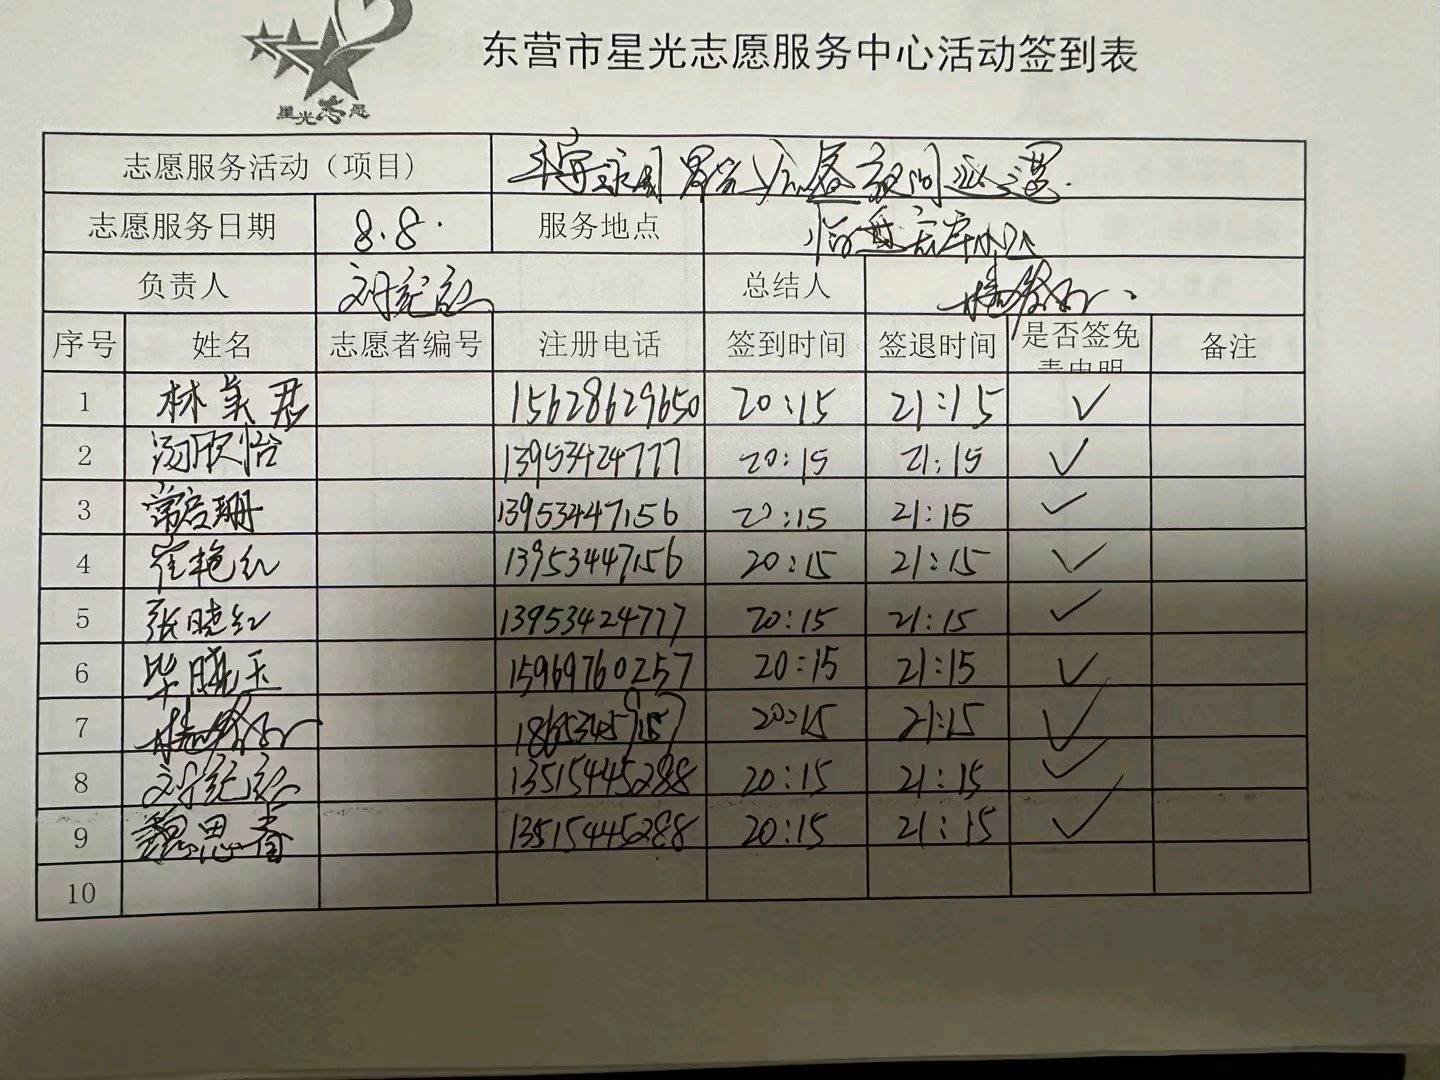 东营市星光志愿服务中心活动签到表
星光志愿
志愿服务活动（项目） 夜间巡逻.
志愿服务日期 8.8. 服务地点
负责人 总结人
序号 姓名 志愿者编号 注册电话 签到时间 签退时间 是否签免责声明 备注
1 林美君 15628629650 20:15 21:15 ✓
2 汤欣怡 13953424777 20:15 21:15 ✓
3 常启珊 13953447156 20:15 21:15 ✓
4 崔艳红 13953447156 20:15 21:15 ✓
5 张晓红 13953424777 20:15 21:15 ✓
6 毕晓玉 15969760257 20:15 21:15 ✓
7 20:15 21:15 ✓
8 13515445288 20:15 21:15 ✓
9 魏思睿 13515445288 20:15 21:15 ✓
10